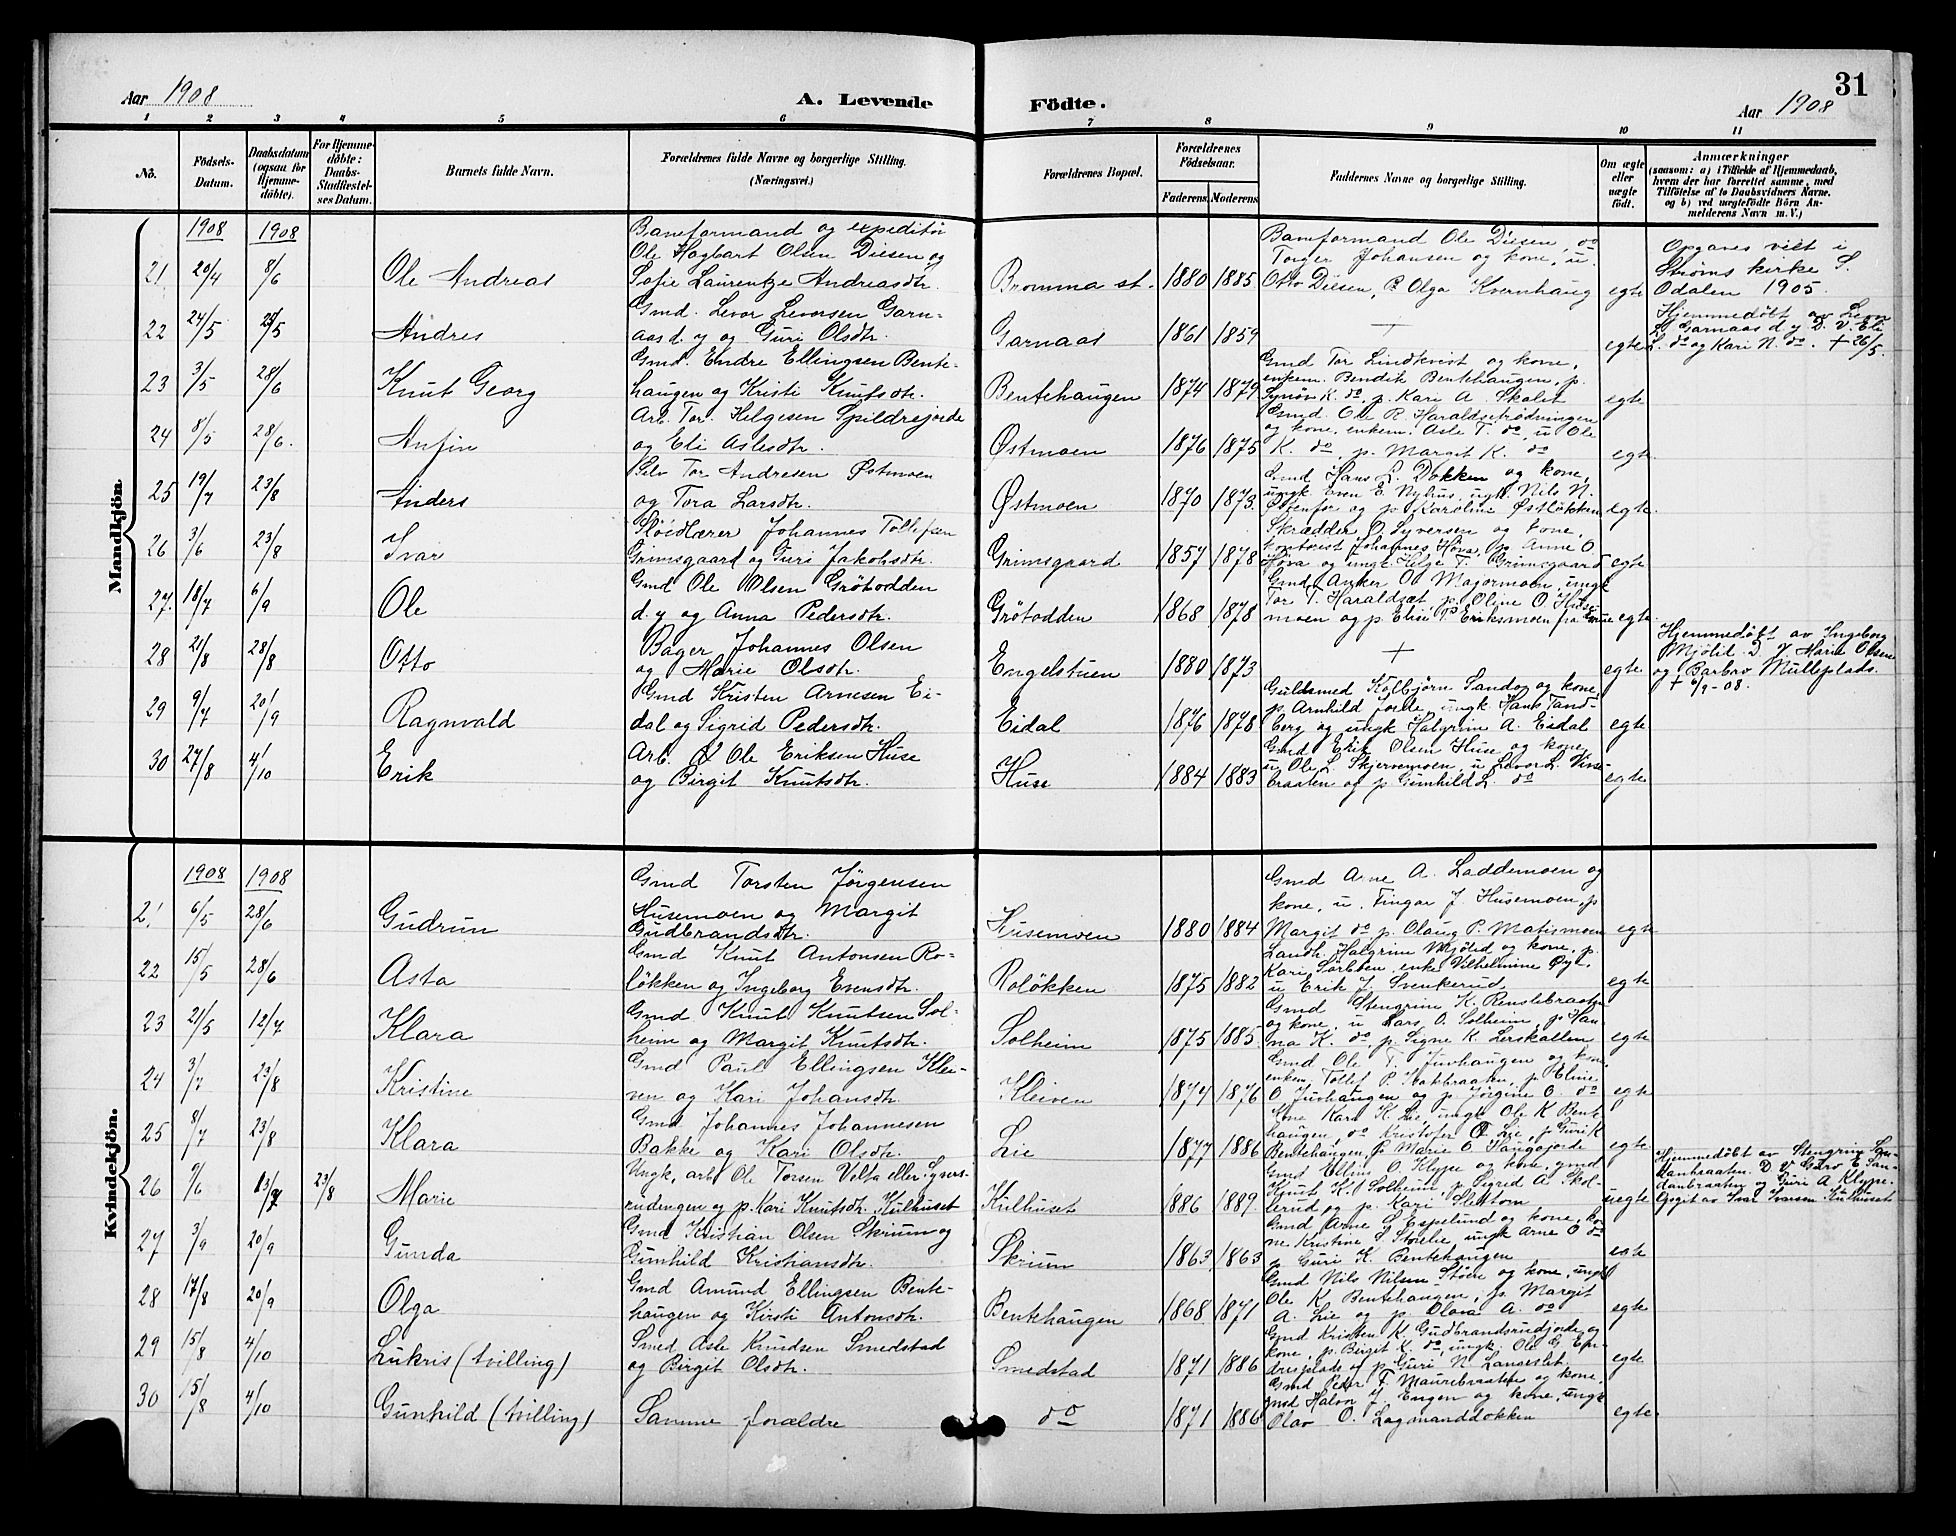 31
Aar 1908
A. Levende Födte.
Aar 1908
1 2 3 4 5 6 7 8 9 10 11
No.
Födsels-Datum.
Daabsdatum (ogsaa for Hjemme-döbte).
For Hjemme-döbte: Daabs-Stadfæstel-ses Datum.
Barnets fulde Navn.
Forældrenes fulde Navne og borgerlige Stilling. (Næringsvei.)
Forældrenes Bopæl.
Forældrenes Födselsaar.
Faderens. Moderens.
Faddernes Navne og borgerlige Stilling.
Om ægte eller uægte födt.
Anmærkninger
(saasom: a) i Tilfælde af Hjemmedaab,
hvem der har forrettet samme, med
Tilföielse af to Daabsvidners Navne,
og b) ved uægtefödte Börn An-
melderens Navn m. V.)
Mandkjön.
1908 1908
21 20/4 8/6 Ole Andreas
Baneformand og expeditör
Ole Hagbart Olsen Diesen og
Sofie Laurentze Andreasdtr.
Bromma st. 1880 1885
Baneformand Ole Diesen, do
Torger Johansen og kone, u.
Otto Diesen, P. Olga Kvernhaug
egte
Opgaves viet i
Ströms kirke S.
Odalen 1905.
22 24/5 25/5 Andres
Gmd. Levor Levorsen Garn-
aas d. y og Guri Olsdtr.
Garnaas 1861 1859
+
egte
Hjemmedöbt av Levor
L. Garnaas d y D. V. Eli
L. do og Kari N. do. + 26/5.
23 3/5 28/6 Knut Georg
Gmd. Endre Ellingsen Bente-
haugen og Kristi Knutsdtr.
Bentehaugen 1874 1879
Gmd Tor Lindkvist og kone,
enkem. Bendik Bentehaugen, p.
Synöv K. do, p. Kari A. Skolet
egte
24 8/5 28/6. Anfin
Arb. Tor. Helgesen Guldrejorde
og Eli Aslesdtr.
Østmoen 1876 1875
Gmd. Ole R. Haraldsetrödningen
og kone, enkem. Asle T. do, u Ole
K. do, p. Margit K. do
egte.
25 19/7 23/8 Anders
Selv Tor Andresen Østmoen
og Tora Larsdtr.
Østmoen 1870 1873
Gmd Hans L. Dokken og kone,
ungk Even E. Nyhus, ungk. Nils N.
Østenfor og p. Karoline Østlökken
egte.
26 3/6 23/8 Ivar
Slöidlærer Johannes Tollefsen
Grimsgaard og Guri Jakobsdtr.
Grimsgaard 1857 1878
Skrædder O. Syversen og kone,
kontorist Johannes Höva, p. Anne O.
Höva og ungk. Helge T. Grimsgaard
egte
27. 18/7 6/9 Ole
Gmd Ole Olsen Grötodden
d. y og Anna Pedersdtr.
Grötodden 1868 1878
Gmd Anker O. Magormoen, ungk
Tor T. Haraldset, p. Oline O. Huse-
moen og p. Elise P. Eriksmoen
egte.
28 21/8 28/8 Otto
Bager Johannes Olsen
og Marie Olsdtr.
Engelstuen 1880 1873
+
egte
Hjemmedöbt av Ingeborg
Mjölid. D. V. Marie Olsen
og Barbro Mulleplads.
+ 6/9-08.
29 9/7 20/9 Ragnvald
Gmd Kristen Arnesen Ei-
dal og Sigrid Pedersdtr.
Eidal 1876 1878
Guldsmed Kolbjörn Sando og kone,
p. Arnhild Jorde, ungk Hans Tand-
berg og ungk Halgrim A. Eidal
egte
30 27/8 4/10 Erik
Arb. Ole Eriksen Huse
og Birgit Knutsdtr.
Huse 1884 1883
Gmd Erik Olsen Huse og kone,
u. Ole L. Skjervemoen, u Levor L. Virse-
braaten og p. Gunhild L. do
egte
Kvindekjön.
1908 1908
21 6/5 28/6 Gudrun
Gmd Torsten Jörgensen
Husemoen og Margit
Gudbrandsdtr.
Husemoen 1880 1884
Gmd Arne A. Laddemoen og
kone, u. Fingar J. Husemoen, p
Margit do p. Olaug P. Matismoen
egte
22 15/5 28/6 Asta
Gmd Knut Antonsen Ro-
lökken og Ingeborg Evensdtr.
Rolökken 1875 1882
Landh. Halgrim Mjölid og kone, p.
Kari Sörböen enke Vilhelmine Öyl.
u Erik J. Svenkerud,
egte
23 21/5 12/7 Klara
Gmd Knut Knutsen Sol-
heim og Margit Knutsdtr.
Solheim 1875 1885.
Gmd Stengrim K. Renslebraaten
og kone, u Lars O. Solheim p Han-
na K. do p. Signe K. Lerskallen
egte
24 3/7 23/8 Kristine
Gmd Paul Ellingsen Klei-
ven og Kari Johansdtr.
Kleiven 1874 1876
Gmd Ole T. Juvhaugen og kone,
enkem. Tollef P. Bakbraaten, p. Eline
O. Juvhaugen og p. Jörgine O. do
egte
25 8/7 23/8 Klara
Gmd Johannes Johannesen
Bakke og Kari Olsdtr.
Lie 1877 1886
Kone Kari K. Lie, ungk Ole K Bent-
haugen, do Kristofer O Lie, p Guri K
Bentehaugen, p. Marie O. Haugajorde
egte
26 7/6 13/7 23/8 Marie
Ungk. arb Ole Torsen Velta eller Syvers-
rudengen og p. Kari Knutsdtr. Kulhuset
Kulhuset 1886 1889.
Gmd Elling O. Klype og kone, gmd
Knut K. Solheim, p. Sigrid A. Skol-
lerud og p. Kari Slettom
uegte
Hjemmedöbt av Stengrim San-
danbraaten. D. V Guro E San-
danbraaten og Guri A Klype.
Opgit av Ivar Ivarsen Kulhuset
27 3/9 20/9 Gunda
Gmd Kristian Olsen Skrium og
Gunhild Kristiansdtr.
Skrium 1863 1863
Gmd Arne S Espelund og kone, ko-
ne Kristine S. Störelie, ungk Arne O do
p Guri K. Bentehaugen
egte
28 17/8 20/9 Olga
Gmd Amund Ellingsen Bente-
haugen og Kirsti Antonsdtr.
Bentehaugen 1868 1871
Gmd Nils Nilsen Støen og kone, ungk
Ole K. Bentehaugen, p. Margit
A. Lie og p. Olava A. do
egte
29 15/8 4/10 Lukris (tvilling)
Smed Asle Knudsen Smedstad
og Birgit Olsdtr.
Smedstad 1871 1886
Gmd Kristen K. Gudbrandsrudjorde og
kone, p. Birgit K. do, ungk. Ole G. En-
dresplads og p. Guri N. Langeslet
egte
30 15/8 4/10 Gunhild (tvilling)
Samme forældre
do 1871 1886
Gmd Peder T. Maurebraaten og kone,
gmd Halvor J. Engen og kone, ungk
Olav O. Lagmanddokken
egte.